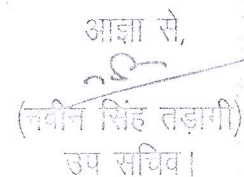 आज्ञा से,
(नवीन सिंह तड़ागी)
उप सचिव।